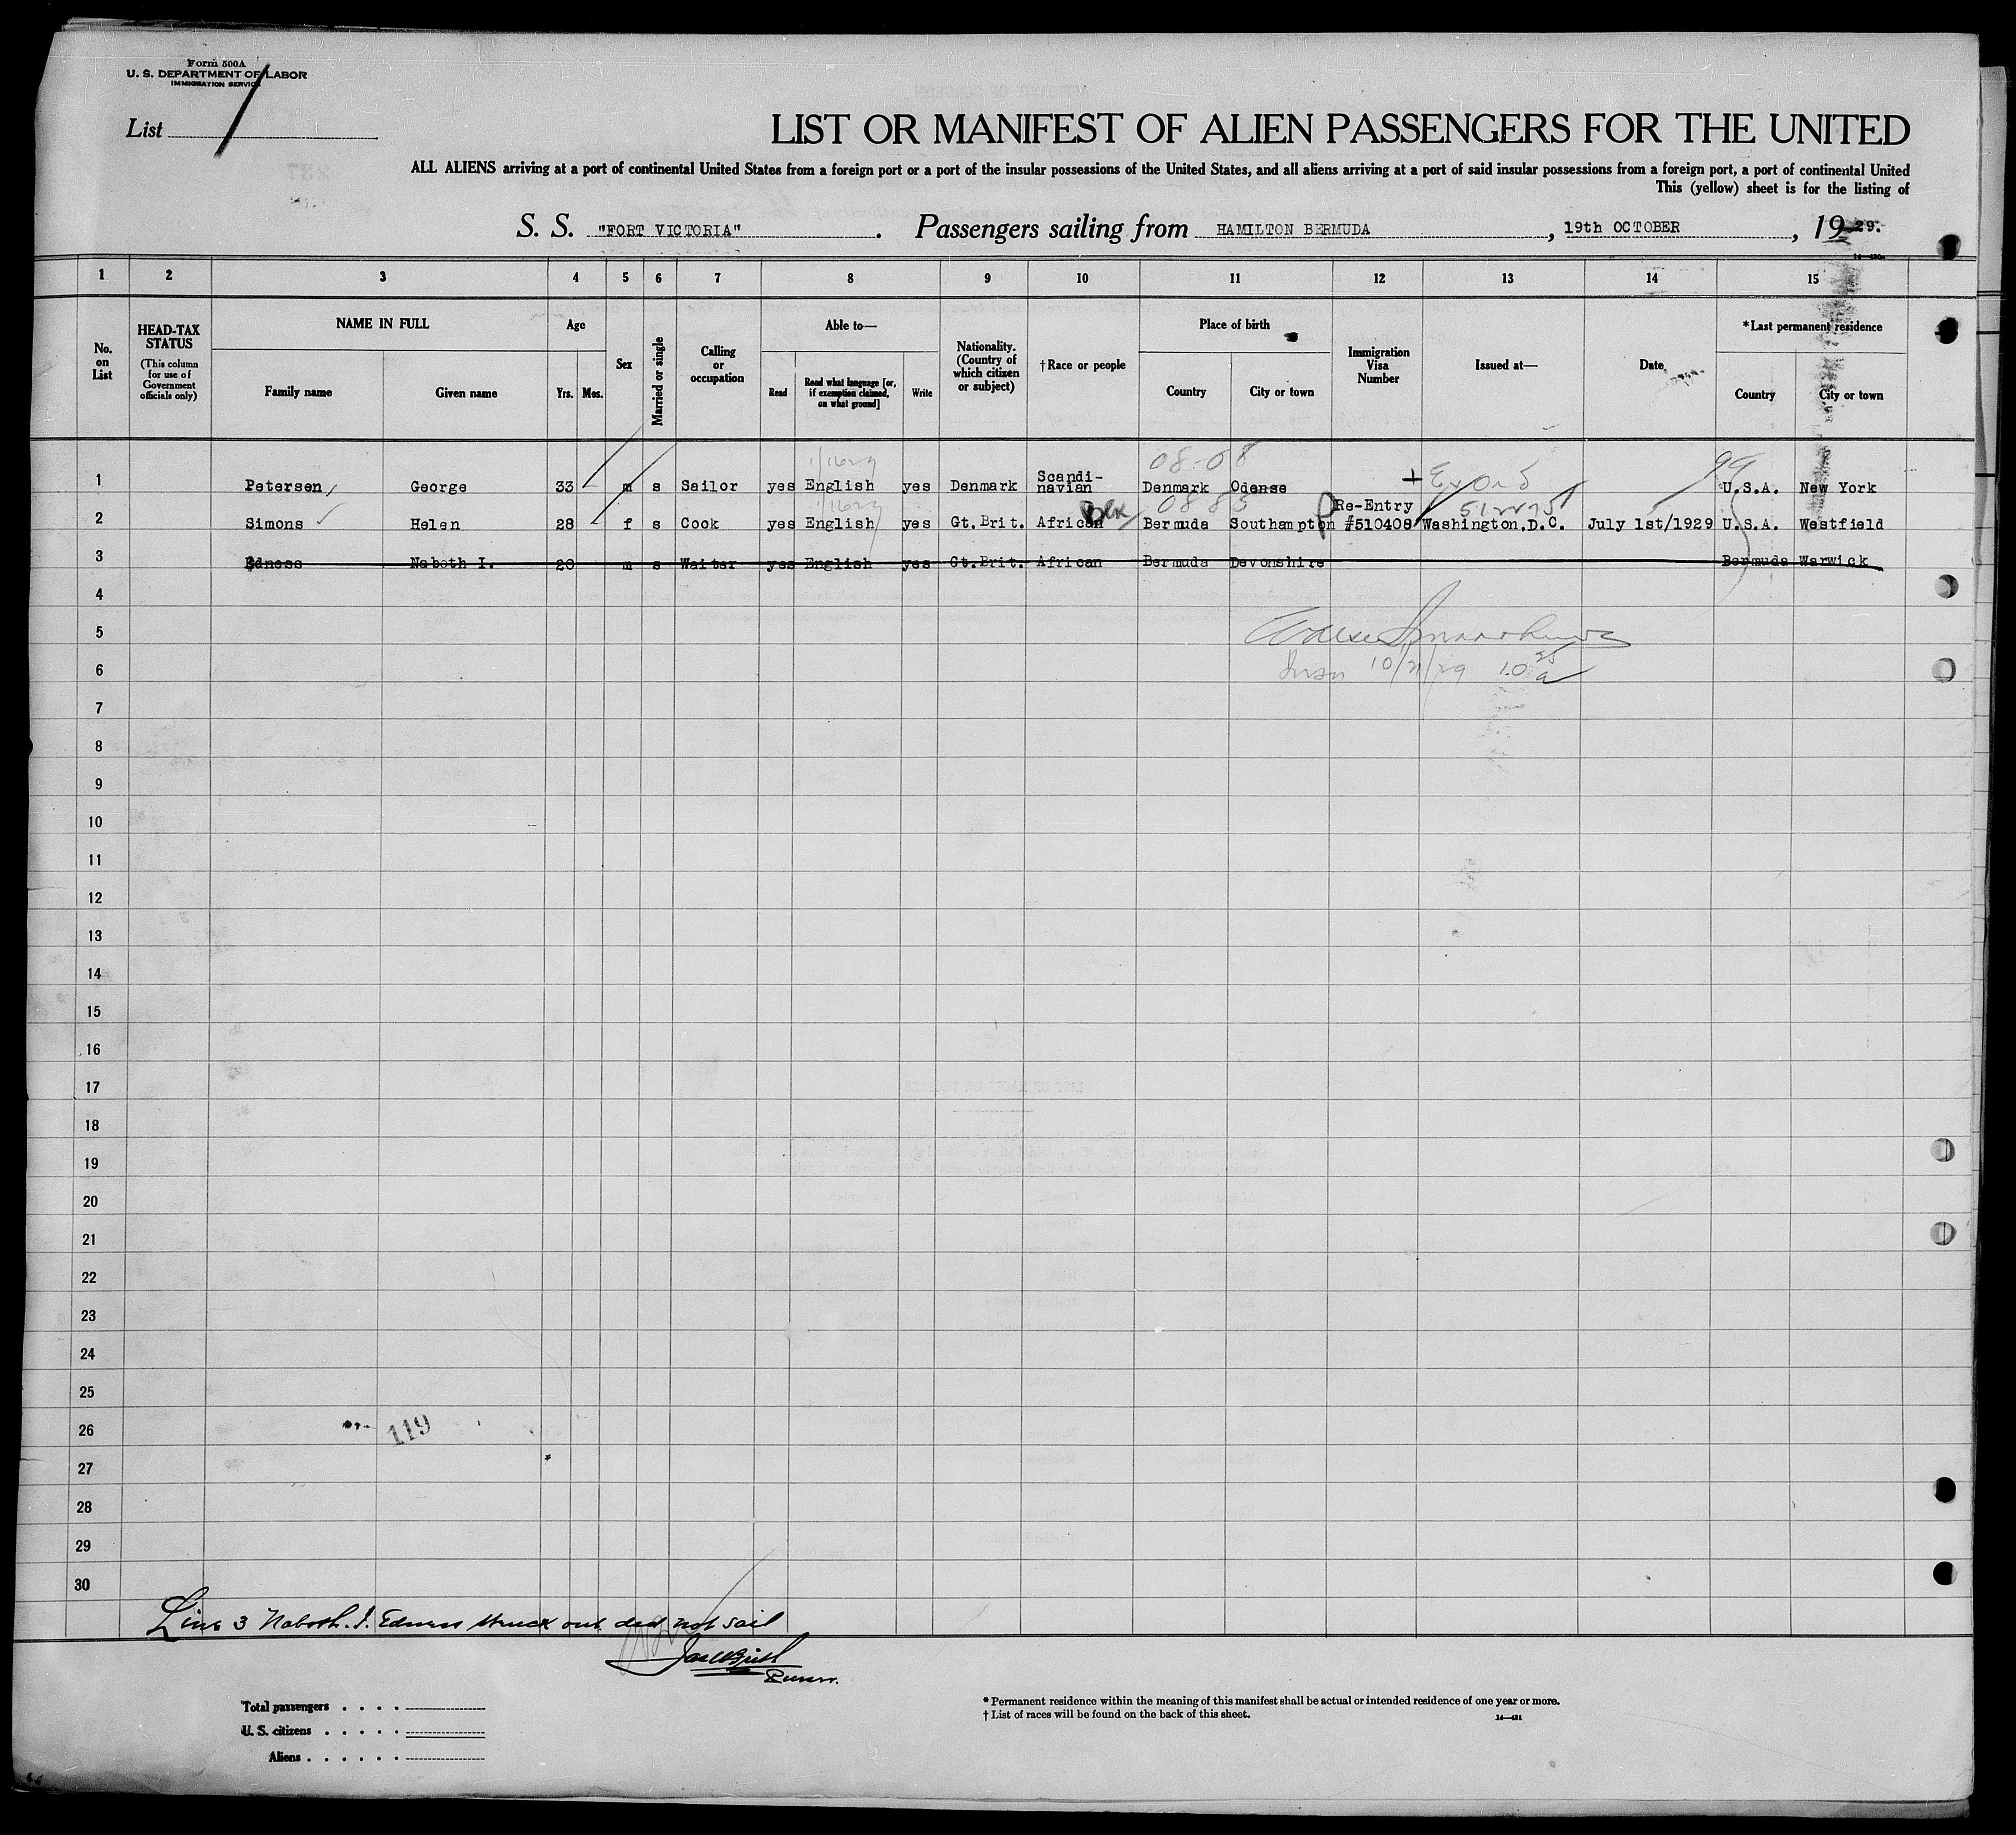 Form 500A
U. S. DEPARTMENT OF LABOR
IMMIGRATION SERVICE
List 1
LIST OR MANIFEST OF ALIEN PASSENGERS FOR THE UNITED
ALL ALIENS arriving at a port of continental United States from a foreign port or a port of the insular possessions of the United States, and all aliens arriving at a port of said insular possessions from a foreign port, a port of continental United
This (yellow) sheet is for the listing of
S. S. "FORT VICTORIA". Passengers sailing from HAMILTON BERMUDA, 19th OCTOBER, 1929.
1 2 3 4 5 6 7 8 9 10 11 12 13 14 15
No. on List
HEAD-TAX STATUS
(This column for use of Government officials only)
NAME IN FULL
Family name Given name
Age
Yrs. Mos.
Sex
Married or single
Calling or occupation
Able to—
Read Read what language [or, if exemption claimed, on what ground] Write
Nationality. (Country of which citizen or subject)
†Race or people
Place of birth
Country City or town
Immigration Visa Number
Issued at—
Date
*Last permanent residence
Country City or town
1 Petersen George 33 m s Sailor yes English yes Denmark Scandinavian Denmark Odense U.S.A. New York
2 Simons Helen 28 f s Cook yes English yes Gt.Brit. African Bermuda Southampton Re-Entry #510408 Washington,D.C. July 1st/1929 U.S.A. Westfield
3 Edness Naboth I. 20 m s Waiter yes English yes Gt.Brit. African Bermuda Devonshire Bermuda Warwick
4
5
6 10/21/29 10 25 a
7
8
9
10
11
12
13
14
15
16
17
18
19
20
21
22
23
24
25
26
119
27
28
29
30
Line 3 Naboth. I. Edness struck out did not sail
Purser.
Total passengers
U. S. citizens
Aliens
* Permanent residence within the meaning of this manifest shall be actual or intended residence of one year or more.
† List of races will be found on the back of this sheet.
14—431